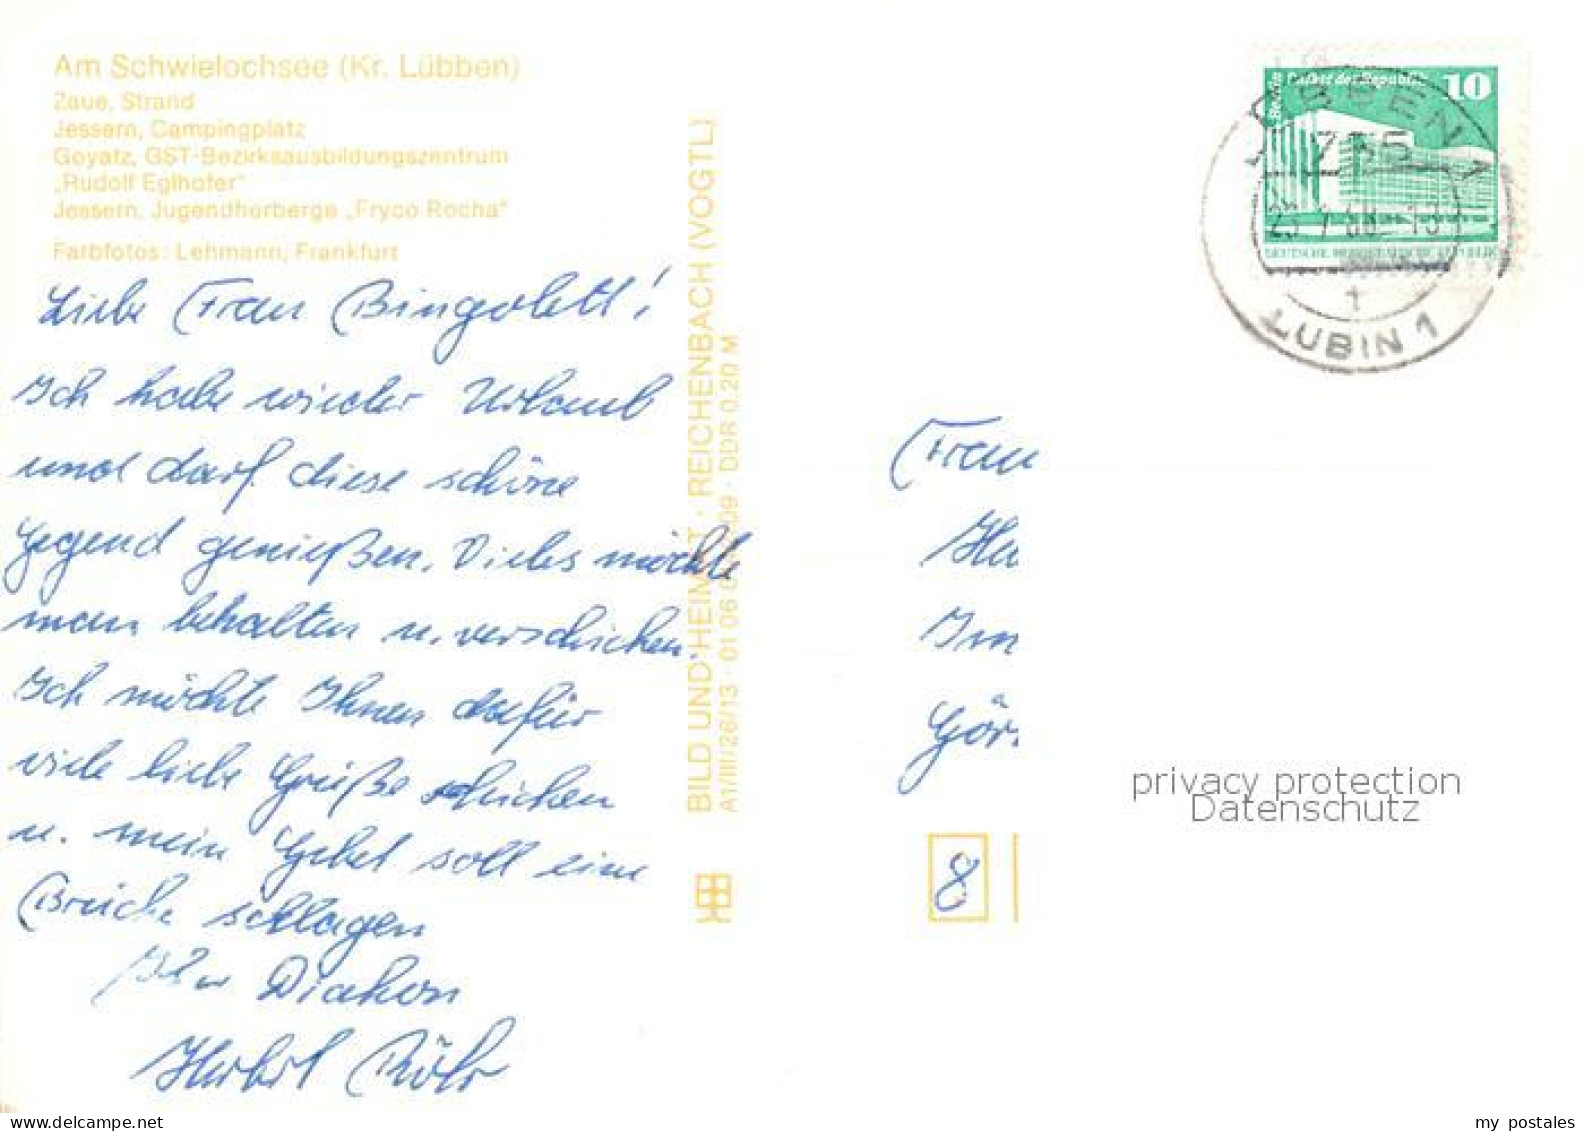 Am Schwielochsee (Kr. Lübben)
Zaue, Strand
Jessern, Campingplatz
Goyatz, GST-Bezirksausbildungszentrum
„Rudolf Eglhofer“
Jessern, Jugendherberge „Fryco Rocha“
Farbfotos: Lehmann, Frankfurt
Liebe Frau
Ich habe wieder Urlaub
und darf diese schöne
Gegend genießen. Vieles möchte
man behalten u. verschicken.
Ich möchte Ihnen dafür
viele liebe Grüße schicken
u. mein Gebet soll eine
Brücke schlagen
Ihr Diakon
BILD UND HEIMAT · REICHENBACH (VOGTL)
A1/III/26/13 · 01 06 09 · DDR 0,20 M
Palast der Republik
Berlin
10
LÜBBEN 1
755
LUBIN 1
Frau
Gör
8
privacy protection
Datenschutz
my postales